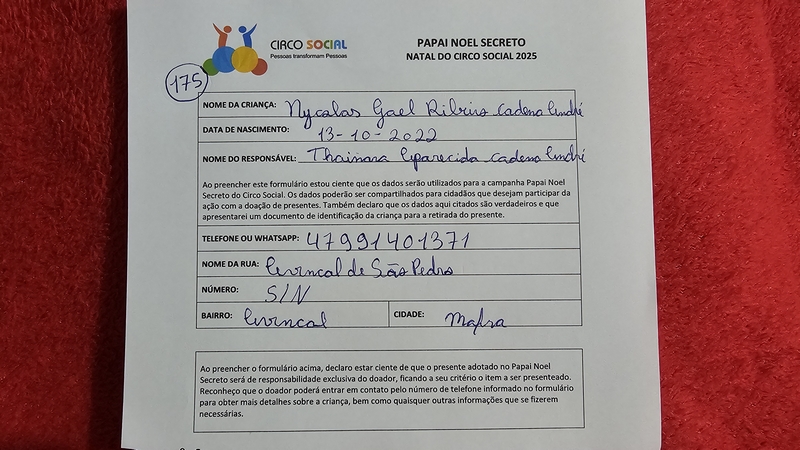 CIRCO SOCIAL
Pessoas transformam Pessoas
PAPAI NOEL SECRETO
NATAL DO CIRCO SOCIAL 2025
175
NOME DA CRIANÇA: Nycolas Gael Ribeiro Cadena André
DATA DE NASCIMENTO: 13-10-2022
NOME DO RESPONSÁVEL: Thainara Aparecida Cadena André
Ao preencher este formulário estou ciente que os dados serão utilizados para a campanha Papai Noel
Secreto do Circo Social. Os dados poderão ser compartilhados para cidadãos que desejam participar da
ação com a doação de presentes. Também declaro que os dados aqui citados são verdadeiros e que
apresentarei um documento de identificação da criança para a retirada do presente.
TELEFONE OU WHATSAPP: 47991401371
NOME DA RUA: de São Pedro
NÚMERO: S/N
BAIRRO: CIDADE: Mafra
Ao preencher o formulário acima, declaro estar ciente de que o presente adotado no Papai Noel
Secreto será de responsabilidade exclusiva do doador, ficando a seu critério o item a ser presenteado.
Reconheço que o doador poderá entrar em contato pelo número de telefone informado no formulário
para obter mais detalhes sobre a criança, bem como quaisquer outras informações que se fizerem
necessárias.